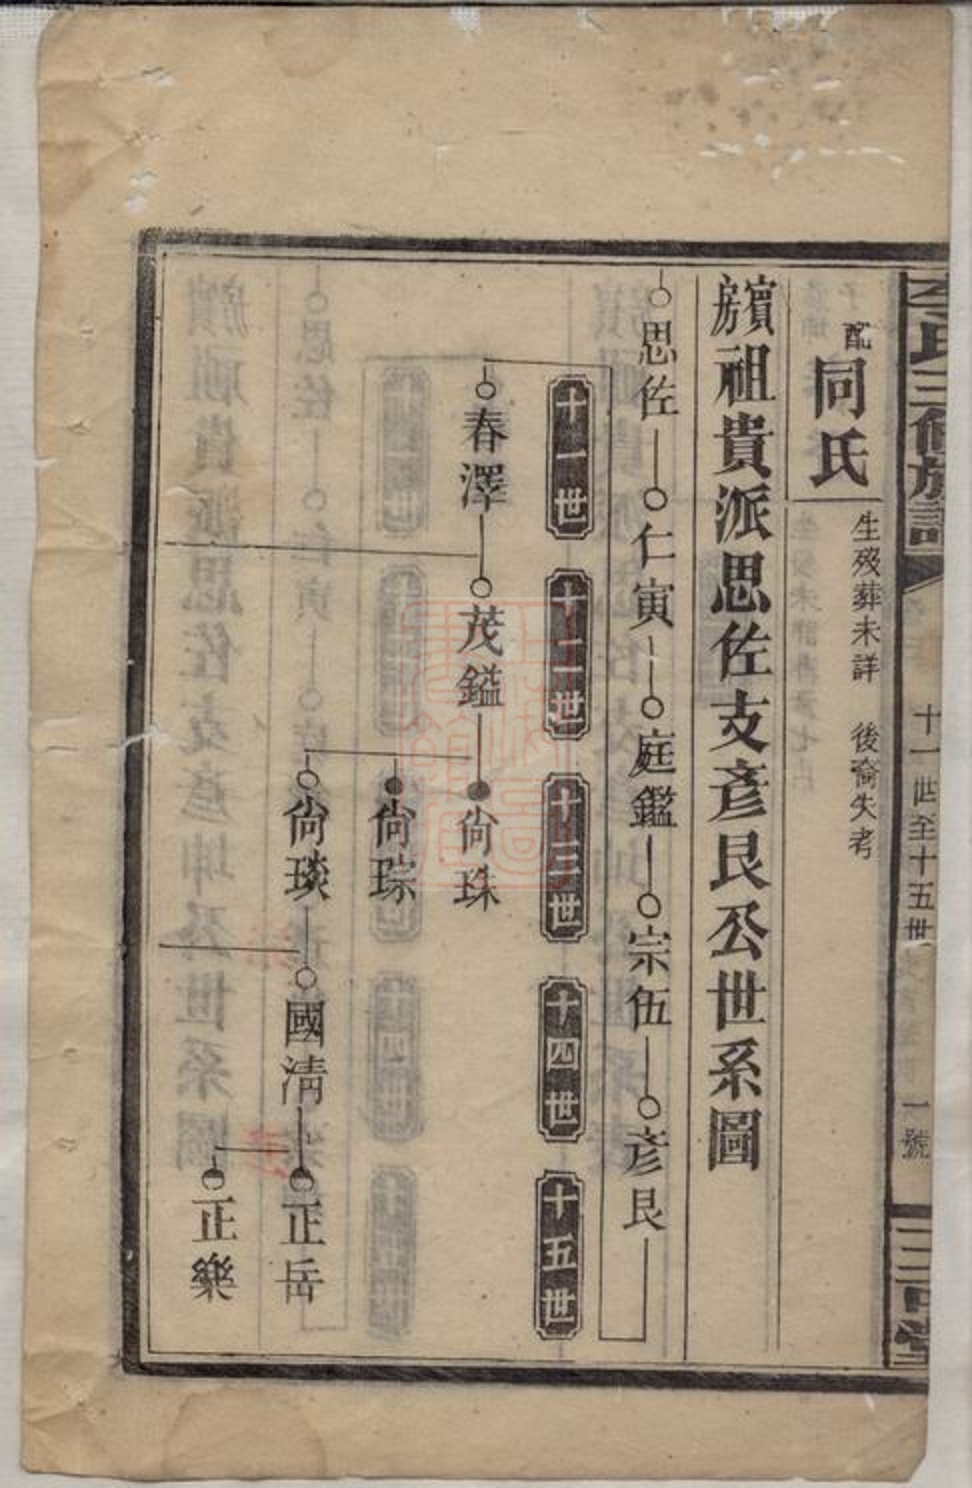 李氏三修族譜
十一世至十五世
一號
三田堂
配同氏
生歿葬未詳 後裔失考
賓房祖貴派思佐支彥艮公世系圖
思佐 仁寅 庭鑑 宗伍 彥艮
十一世 十二世 十三世 十四世 十五世
春澤 茂鎰 尙珠
尙琮
尙琰 國清 正岳
正樂